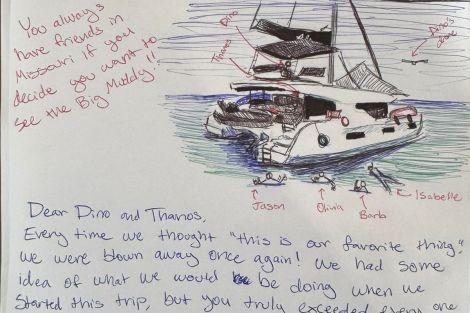 You always
have friends in
Missouri if you
decide you want to
see the Big Muddy!!
Dino
Thanos
Dino's
drone
Jason
Olivia
Barb
Isabelle
Dear Dino and Thanos,
Every time we thought "this is our favorite thing"
we were blown away once again! We had some
idea of what we would be doing when we
started this trip, but you truly exceeded every one